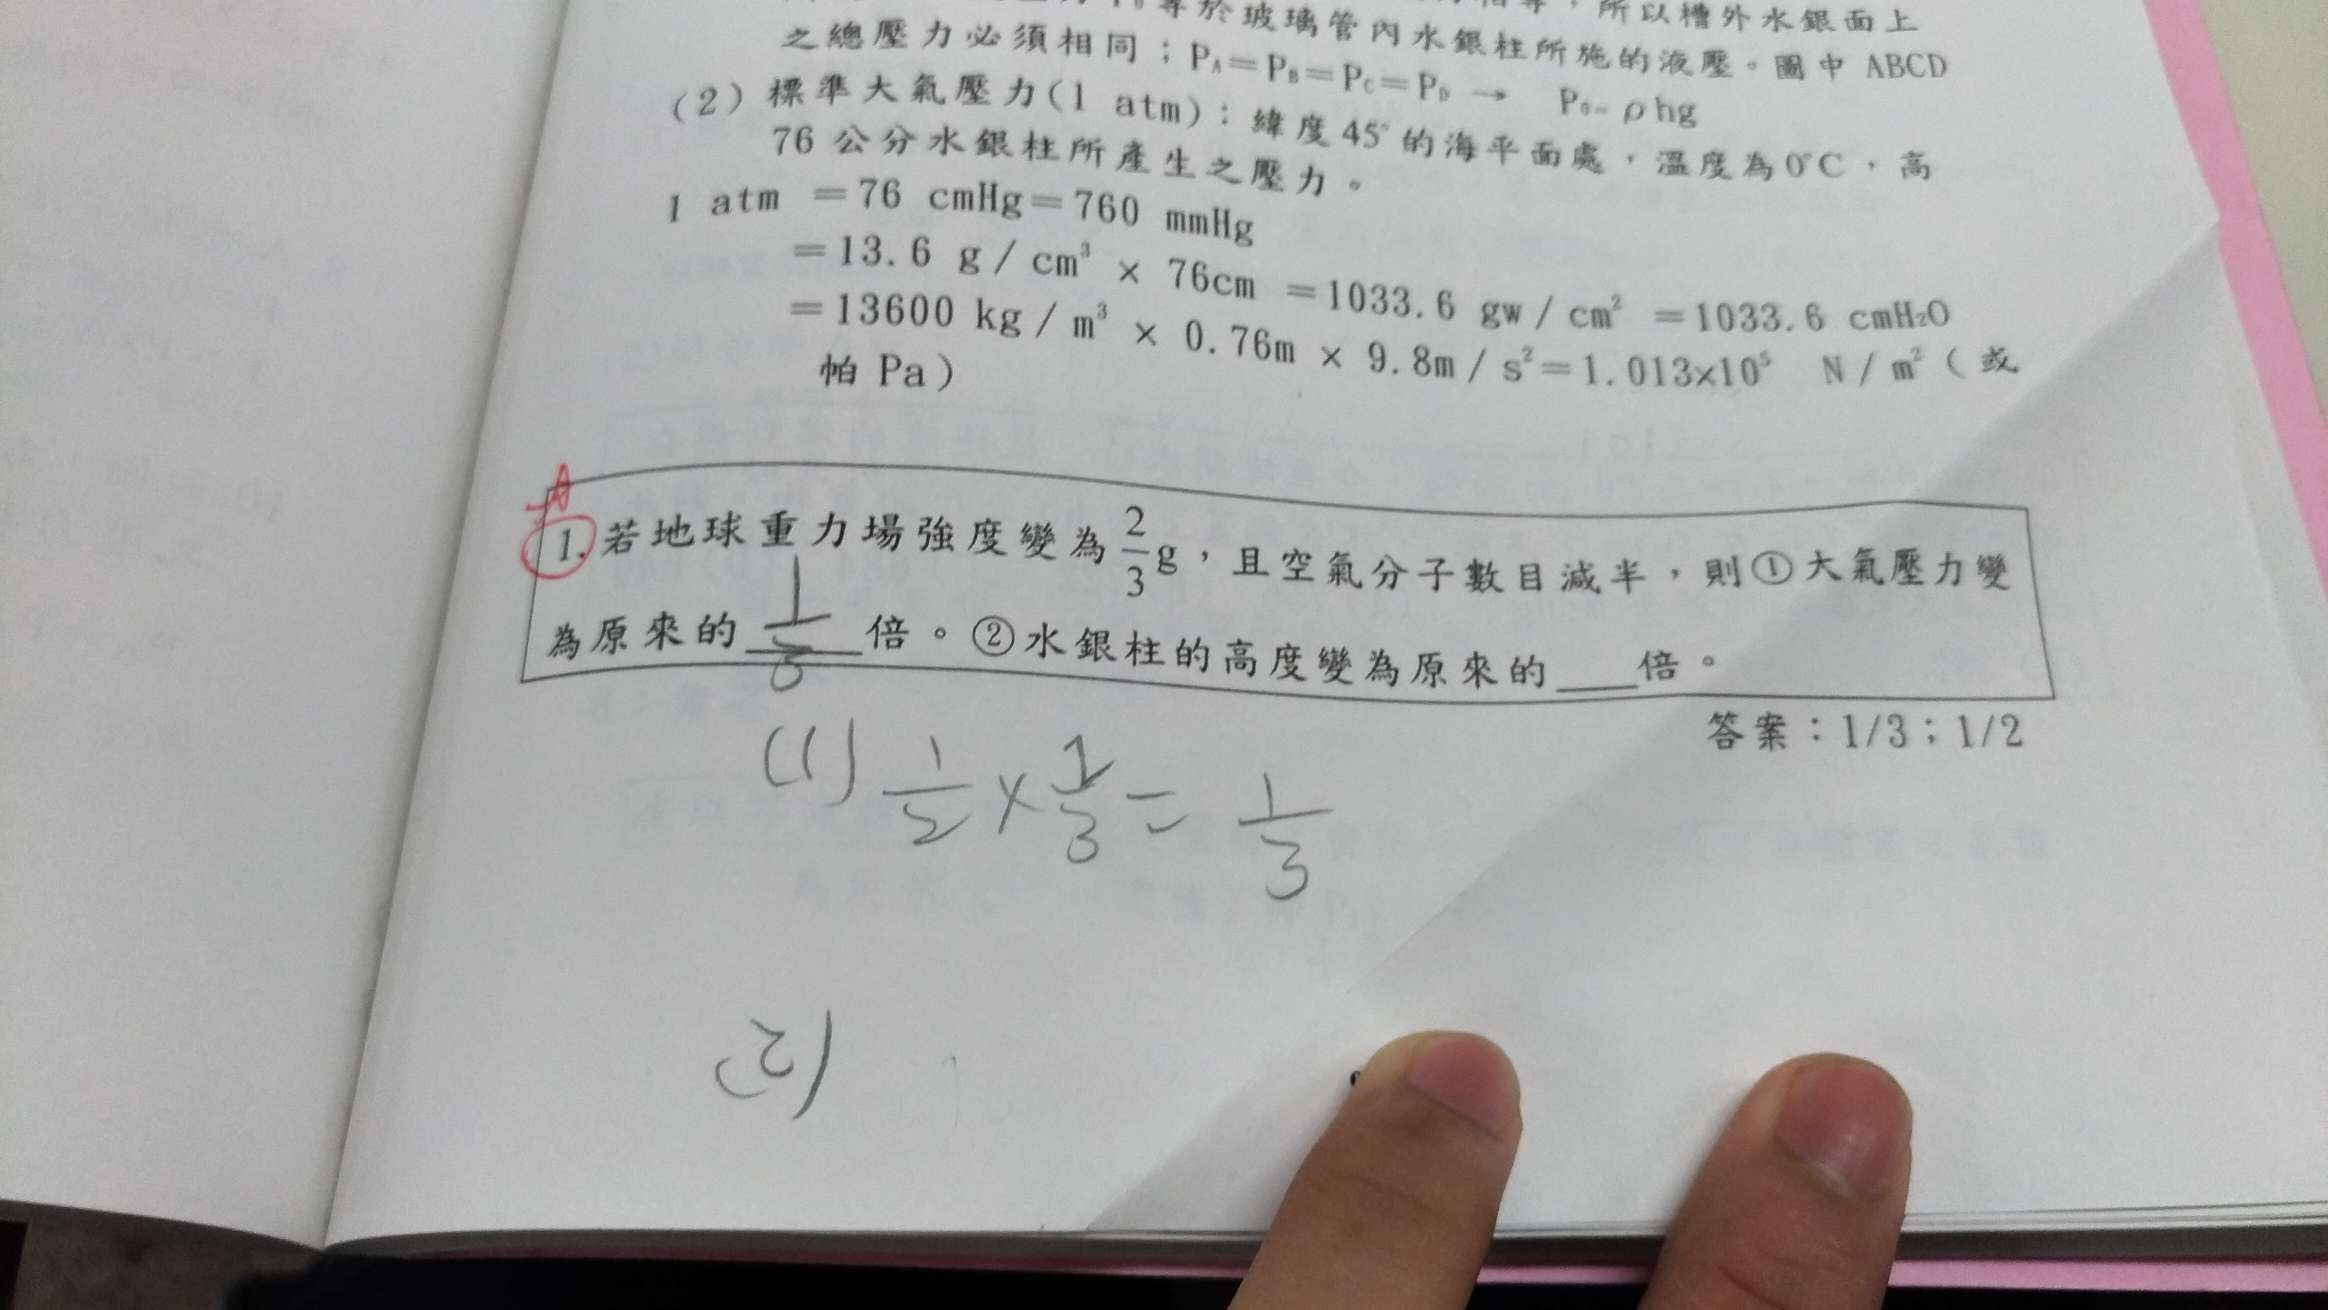 等於玻璃管內水銀柱所施的液壓。圖中 ABCD
所以槽外水銀面上
之總壓力必須相同；PA＝PB＝PC＝PD → P0=ρhg
(2) 標準大氣壓力(1 atm)：緯度45°的海平面處，溫度為0°C，高
76公分水銀柱所產生之壓力。
1 atm ＝76 cmHg＝760 mmHg
＝13.6 g/cm³ × 76cm ＝1033.6 gw/cm² ＝1033.6 cmH₂O
＝13600 kg/m³ × 0.76m × 9.8m/s²＝1.013×10⁵ N/m²（或
帕 Pa）
1. 若地球重力場強度變為2/3g，且空氣分子數目減半，則①大氣壓力變
為原來的 1/3 倍。②水銀柱的高度變為原來的___倍。
答案：1/3；1/2
(1) 1/2 × 2/3 = 1/3
(2)